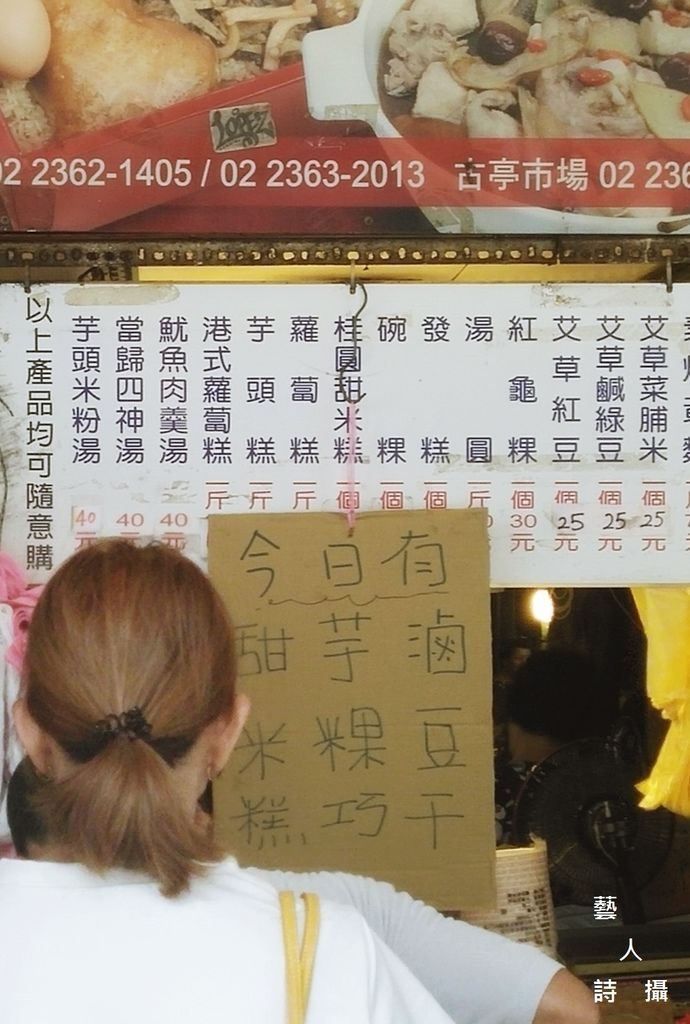 02 2362-1405 / 02 2363-2013 古亭市場 02 236
艾草菜脯米 25元
艾草鹹綠豆 個25元
艾草紅豆 個25元
紅龜粿 個30元
湯圓 一斤
發糕 一個
碗粿 一個
桂圓甜米糕 一個
蘿蔔糕 一斤
芋頭糕 一斤
港式蘿蔔糕 一斤
魷魚肉羹湯 40元
當歸四神湯 40元
芋頭米粉湯 40元
以上產品均可隨意購
今日有
滷豆干
芋粿巧
甜米糕
藝人詩攝